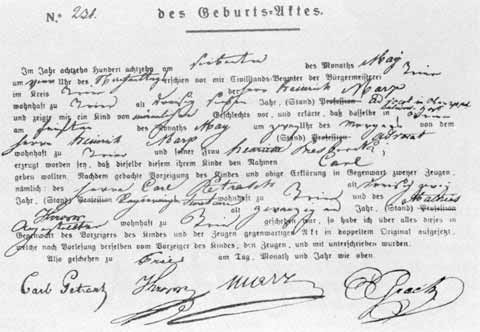 N.º 231.
des Geburts=Aktes.
Im Jahr achtzehn Hundert achtzehn am siebenten des Monaths May
am Uhr des erschien vor mir Civilstands-Beamter der Bürgermeisterei
im Kreis Trier der Herr Heinrich Marx
wohnhaft zu Trier alt Jahr, (Stand) Profession
und zeigte mir ein Kind männlichen Geschlechts vor, und erklärte, daß dasselbe in
am fünften des Monaths May um Uhr des Morgens von dem
Herrn Heinrich Marx (Stand) Profession Advocat
wohnhaft zu Trier und seiner Frau Henriette Presborck
erzeugt worden sey, daß dieselbe diesem ihrem Kinde den Nahmen Carl
geben wollten. Nachdem gedachte Vorzeigung des Kindes und obige Erklärung in Gegenwart zweyer Zeugen,
nämlich: des Herrn Carl Petrasch alt
Jahr, (Stand) Profession wohnhaft zu Trier und des Mathias
Kropp alt Jahr, (Stand) Profession
wohnhaft zu Trier geschehen war; so habe ich über alles dieses in
Gegenwart des Vorzeigers des Kindes und der Zeugen gegenwärtigen Akt in doppeltem Original aufgesetzt,
welche nach Vorlesung derselben vom Vorzeiger des Kindes, den Zeugen, und mir unterschrieben wurden.
Also geschehen zu Trier am Tag, Monath und Jahr wie oben.
Carl Petrasch Kropp Marx E Grach